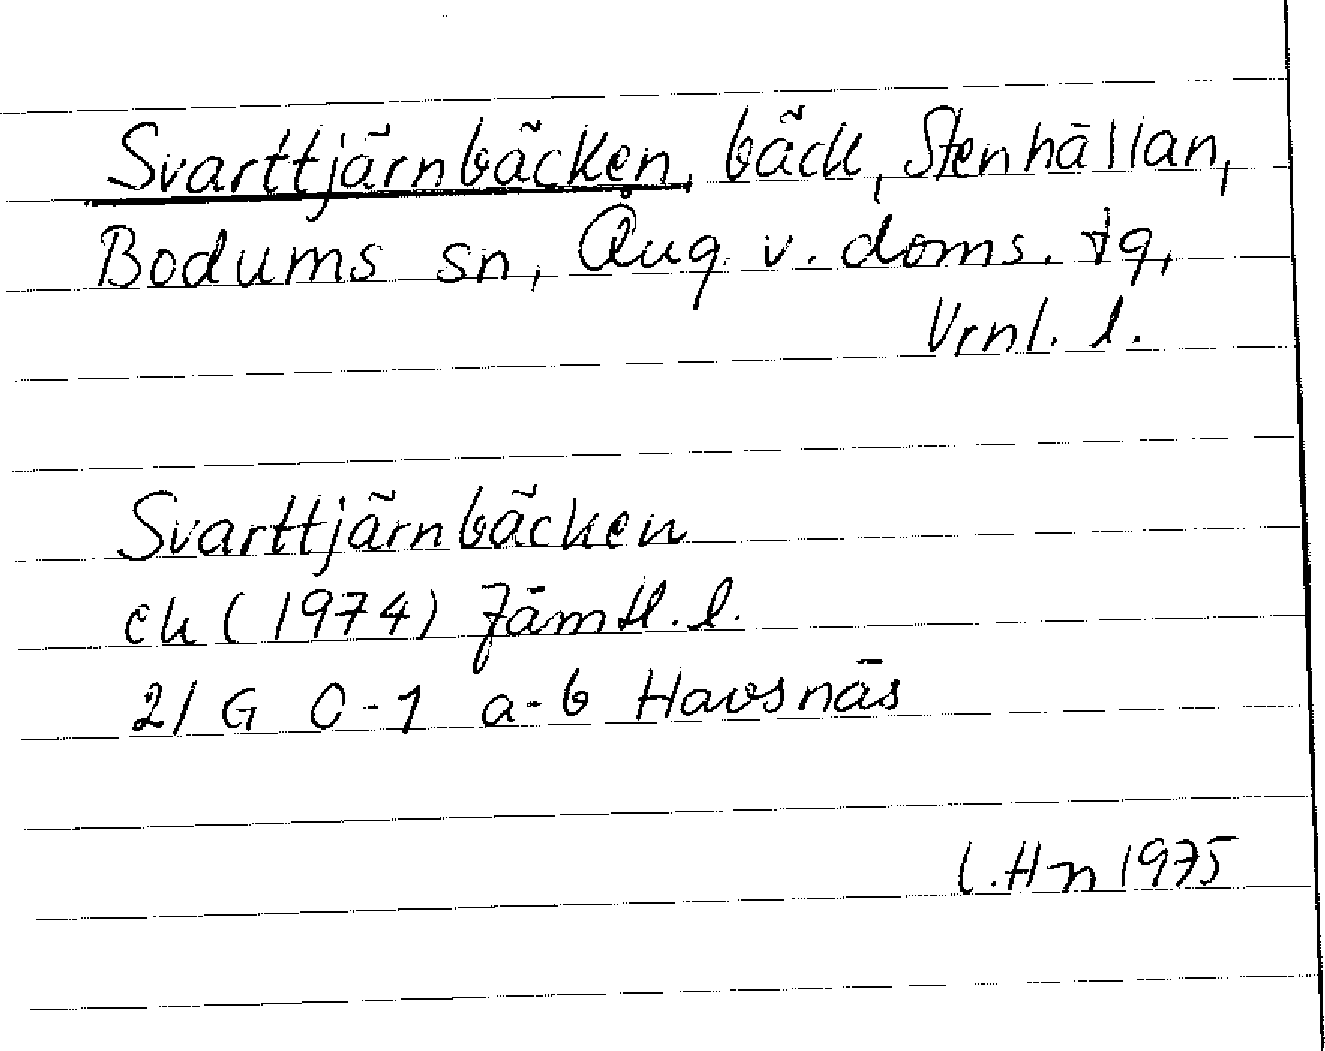 Svarttjärnbäcken, bäck, Stenhällan,
Bodums sn, Ång. v. doms. tg,
Vrnl. l.
Svarttjärnbäcken
ek (1974) Jämtl. l.
21 G 0-1 a-b Havsnäs
L.Hn 1975